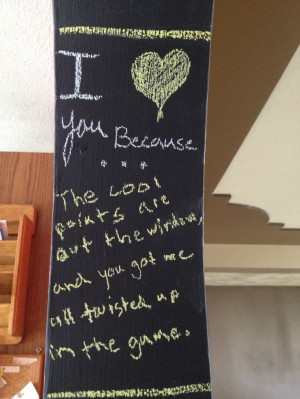 I ♥
you Because
...
The cool
points are
out the window,
and you got me
all twisted up
in the game.